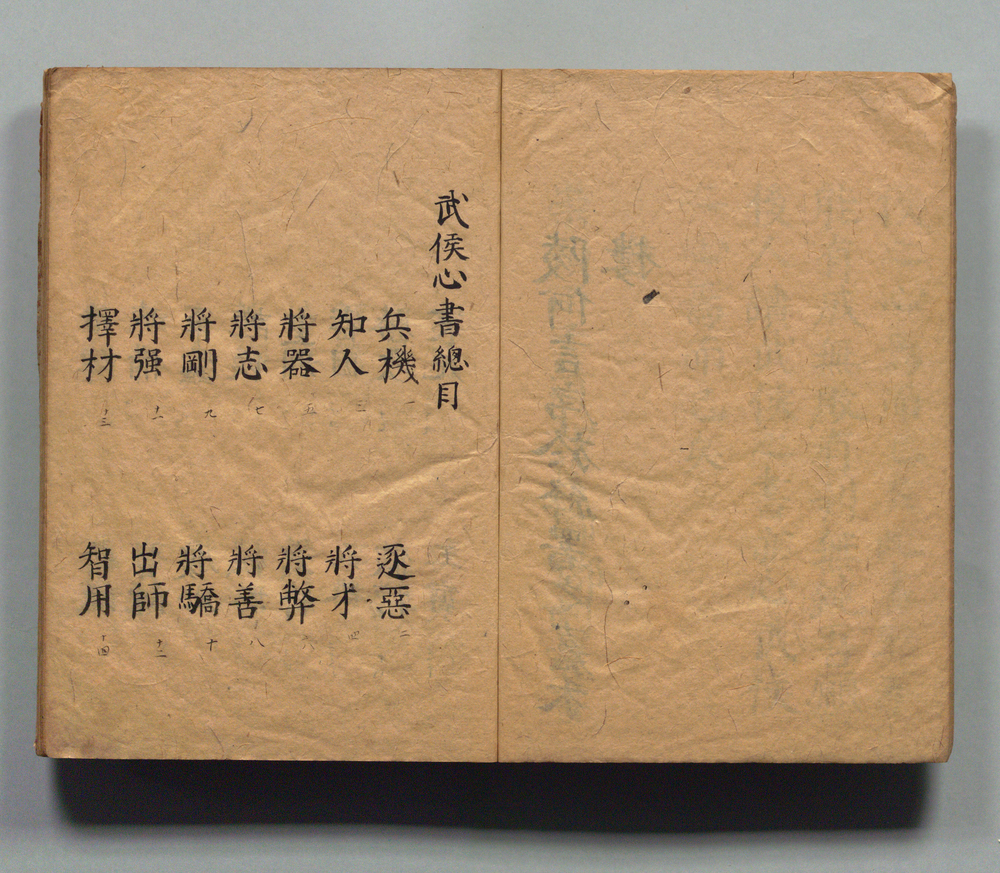 武侯心書總目
兵機一 逐惡二
知人三 將才四
將器五 將弊六
將志七 將善八
將剛九 將驕十
將强十一 出師十二
擇材十三 智用十四